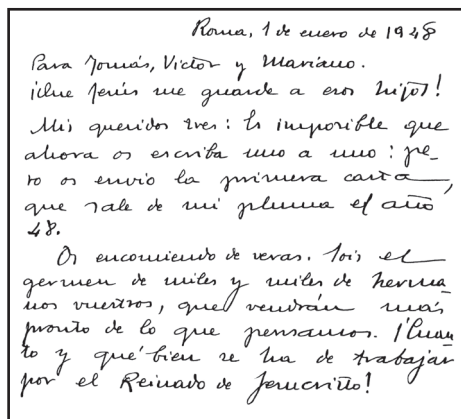 Roma, 1 de enero de 1948
Para Tomás, Víctor y Mariano.
¡Que Jesús me guarde a esos hijos!
Mis queridos tres: Es imposible que
ahora os escriba uno a uno: pe-
ro os envío la primera carta,
que sale de mi pluma el año
48.
Os encomiendo de veras. Sois el
germen de miles y miles de herma-
nos vuestros, que vendrán más
pronto de lo que pensamos. ¡Cuan-
to y qué bien se ha de trabajar
por el Reinado de Jesucristo!